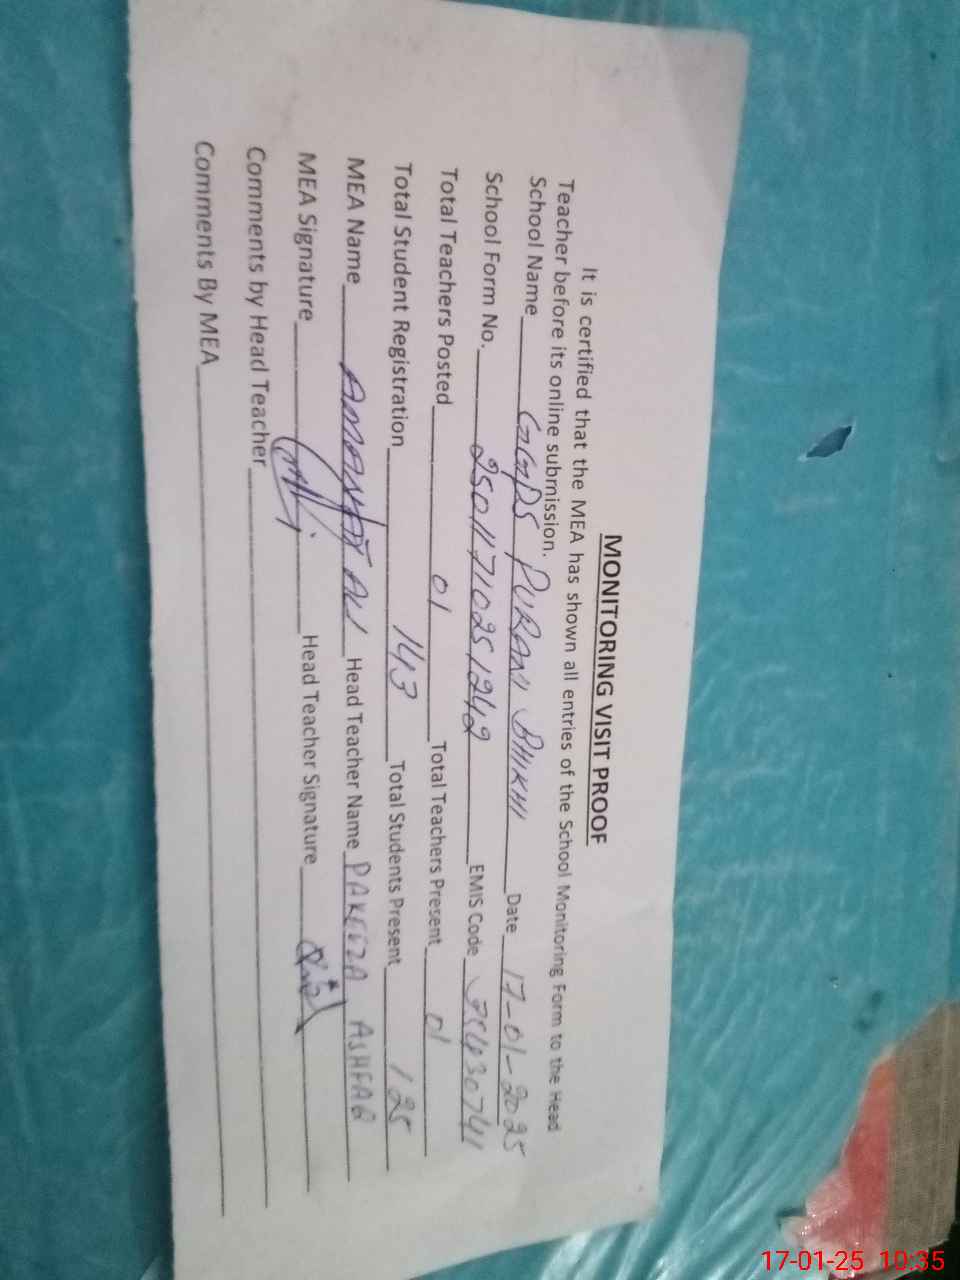 MONITORING VISIT PROOF
It is certified that the MEA has shown all entries of the School Monitoring Form to the Head
Teacher before its online submission.
School Name GGPS PURANI BHIKHI Date 17-01-2025
School Form No. 25011710251242 EMIS Code
Total Teachers Posted 01 Total Teachers Present 01
Total Student Registration 143 Total Students Present 125
MEA Name AMANAT ALI Head Teacher Name PAKEEZA ASHFAQ
MEA Signature Head Teacher Signature
Comments by Head Teacher
Comments By MEA
17-01-25 10:35